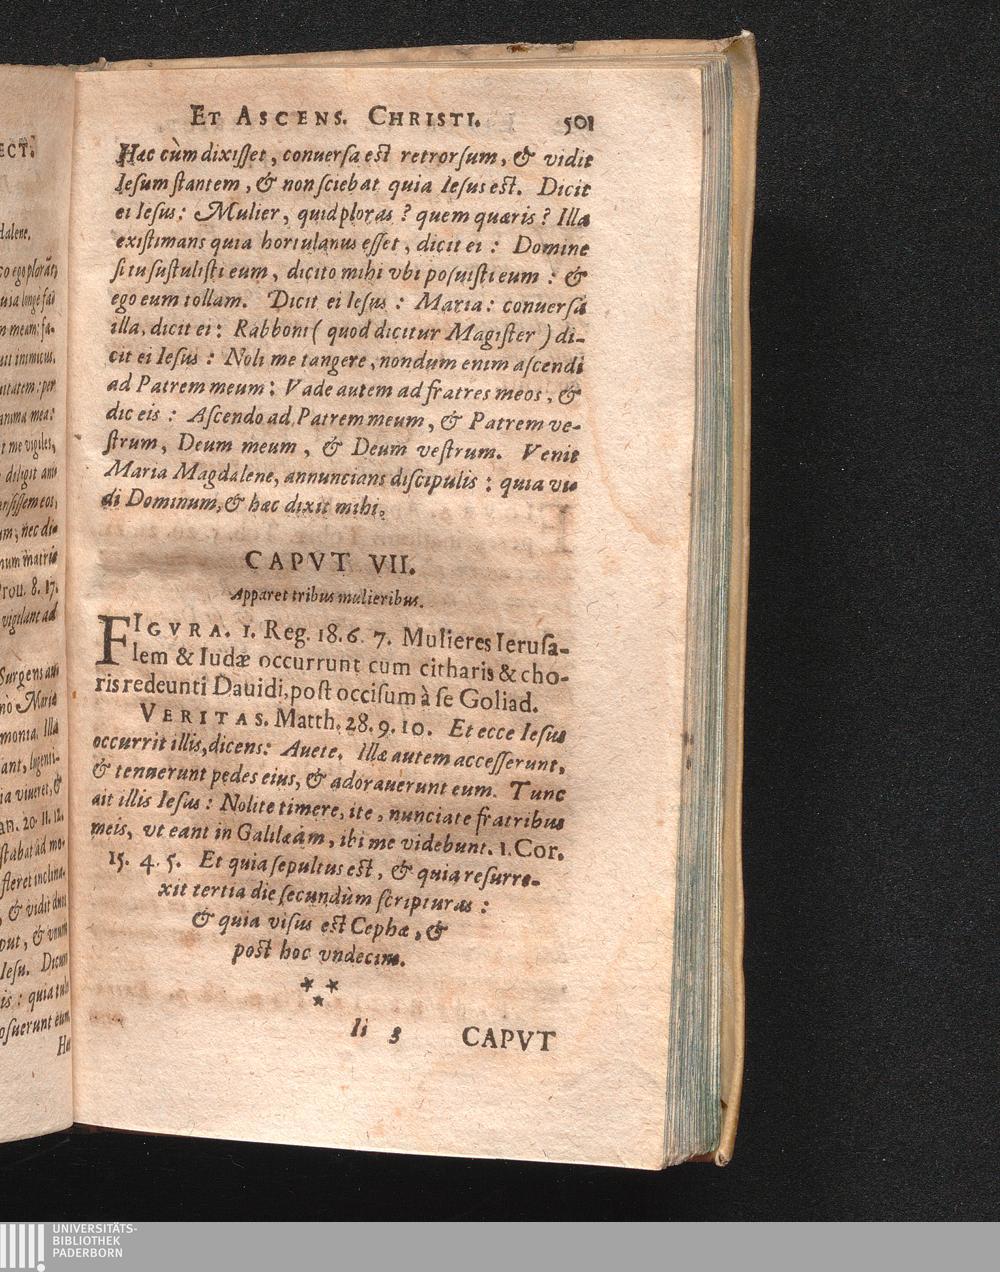 ECT.
dalene.
anima mea:
t me vigiles,
diligit ani
nec di-
num matris
Prou. 8. 17.
vigilant ad
Surgens aut
nò Maria
monia. Illa
ant, lugenti-
ia viueret, &
an. 20. 11. 12.
stabat ad mo-
fleret inclina-
, & vidit duos
Iesu. Dicunt
is: quia tule
osuerunt eum
Hæc
ET ASCENS. CHRISTI. 501
Hæc cùm dixisset, conuersa est retrorsum, & vidit
Iesum stantem, & non sciebat quia Iesus est. Dicit
ei Iesus: Mulier, quid ploras? quem quæris? Illa
existimans quia hortulanus esset, dicit ei: Domine
si tu sustulisti eum, dicito mihi vbi posuisti eum: &
ego eum tollam. Dicit ei Iesus: Maria: conuersa
illa, dicit ei: Rabboni (quod dicitur Magister) di-
cit ei Iesus: Noli me tangere, nondum enim ascendi
ad Patrem meum: Vade autem ad fratres meos, &
dic eis: Ascendo ad Patrem meum, & Patrem ve-
strum, Deum meum, & Deum vestrum. Venit
Maria Magdalene, annuncians discipulis: quia vi-
di Dominum, & hæc dixit mihi.
CAPVT VII.
Apparet tribus mulieribus.
FIGVRA. 1. Reg. 18. 6. 7. Mulieres Ierusa-
lem & Iudæ occurrunt cum citharis & cho-
ris redeunti Dauidi, post occisum à se Goliad.
VERITAS. Matth. 28. 9. 10. Et ecce Iesus
occurrit illis, dicens: Auete. Illæ autem accesserunt,
& tenuerunt pedes eius, & adorauerunt eum. Tunc
ait illis Iesus: Nolite timere, ite, nunciate fratribus
meis, vt eant in Galilæam, ibi me videbunt. 1. Cor.
15. 4. 5. Et quia sepultus est, & quia resurre-
xit tertia die secundùm scripturas:
& quia visus est Cephæ, &
post hoc vndecim.
* *
*
Ii 3 CAPVT
UNIVERSITÄTS-
BIBLIOTHEK
PADERBORN